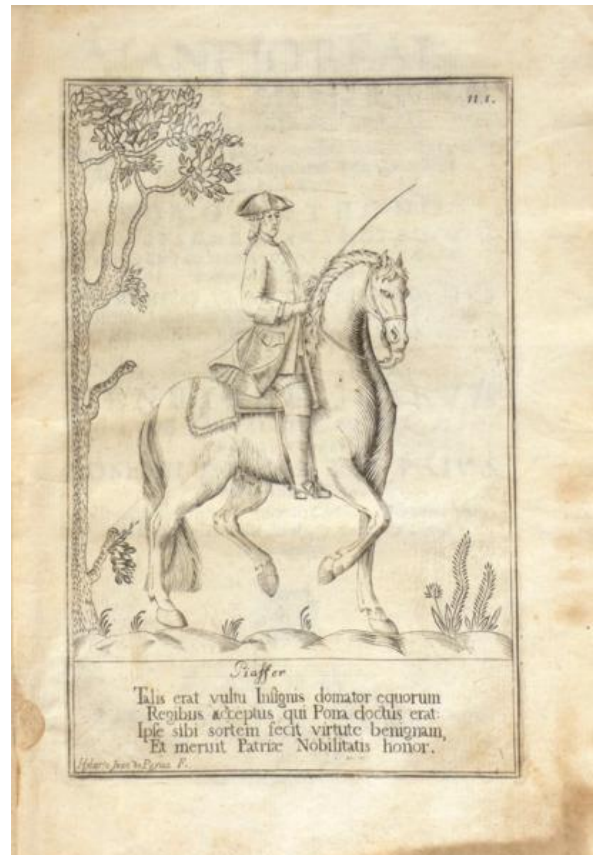 n. 1.
Piaffer
Talis erat vultu Insignis domator equorum
Regibus acceptus qui Pona doctus erat:
Ipse sibi sortem fecit virtute benignam,
Et meruit Patriæ Nobilitatis honor.
F.